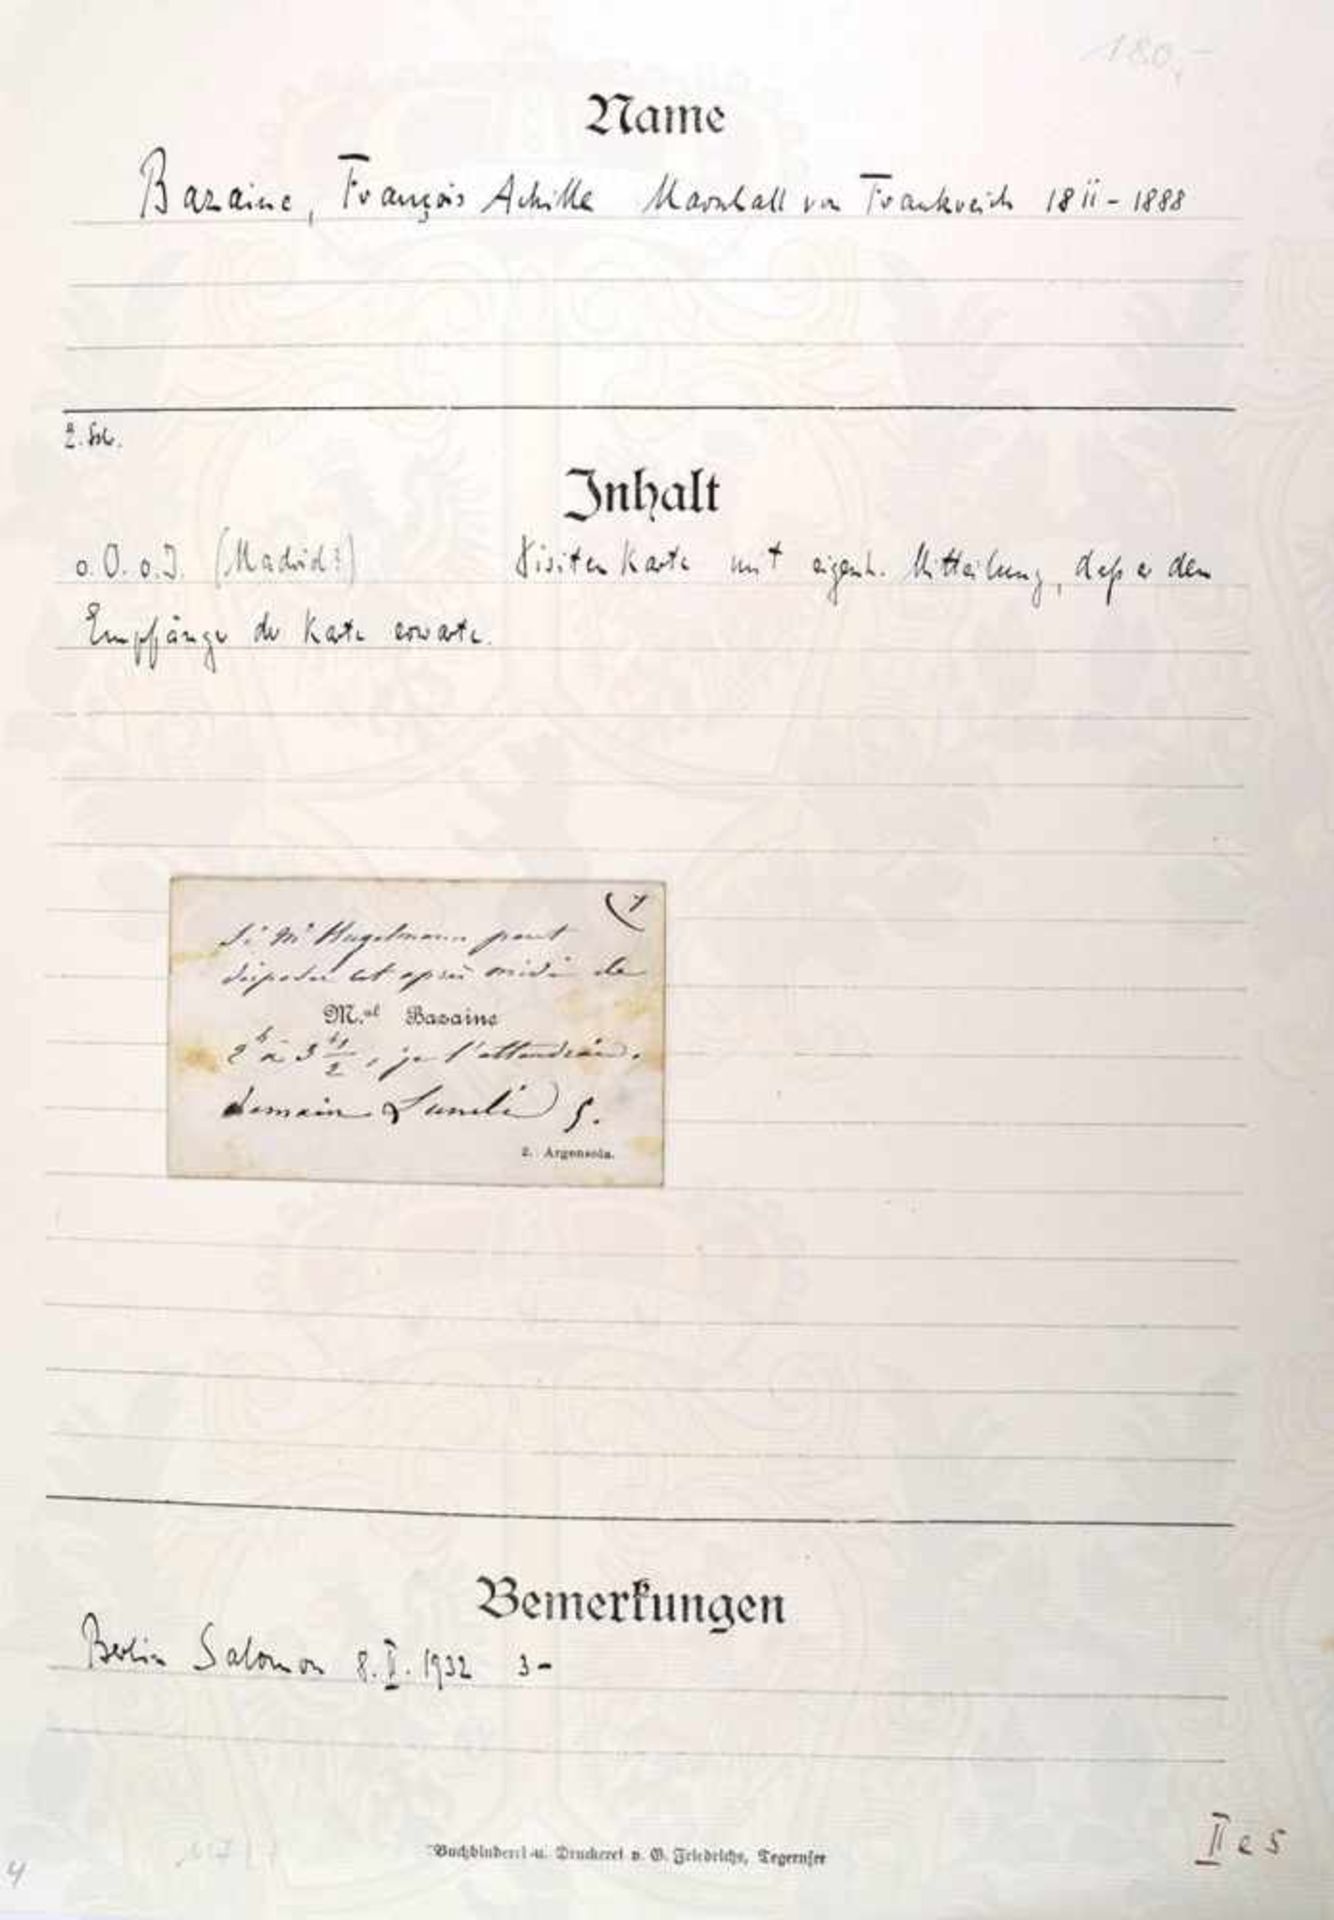 180,-
Name
Bazaine, François Achille Marschall von Frankreich 1811-1888
Inhalt
o.O. o.J. (Madrid?) Visitenkarte mit eigenh. Mitteilung, daß er den
Empfänger der Karte erwarte.
Si Mr Hugelmann peut
disposer cet après midi de
M.al Bazaine
2h à 3h 1/2, je l'attendrai.
demain Lundi 5.
2. Argensola.
Bemerkungen
Berlin Salomon 8.II.1932 3-
Buchbinderei u. Druckerei v. G. Friedrichs, Tegernsee
II e 5
4